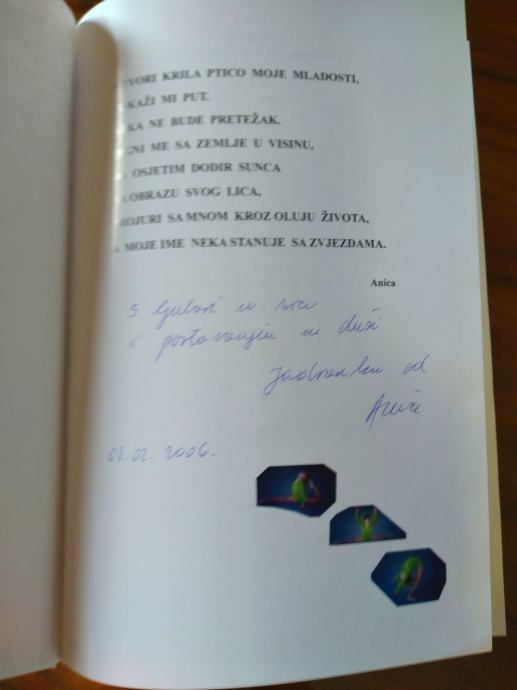 TVORI KRILA PTICO MOJE MLADOSTI,
KAŽI MI PUT.
KA NE BUDE PRETEŽAK.
GNI ME SA ZEMLJE U VISINU,
OSJETIM DODIR SUNCA
OBRAZU SVOG LICA,
ROJURI SA MNOM KROZ OLUJU ŽIVOTA,
MOJE IME NEKA STANUJE SA ZVJEZDAMA.
Anica
S ljubavi u srcu
i poštovanju u duši
Jadranku od
Anice
02.02.2006.